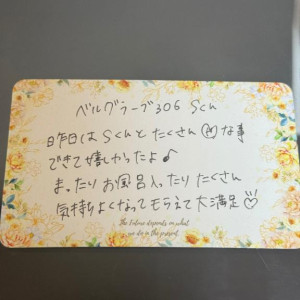 ベルグラーブ306 Sくん
昨日はSくんとたくさんHな事
できて嬉しかったよ♪
まったりお風呂入ったりたくさん
気持ちよくなってもらえて大満足♡
The Future depends on what
we do in the present